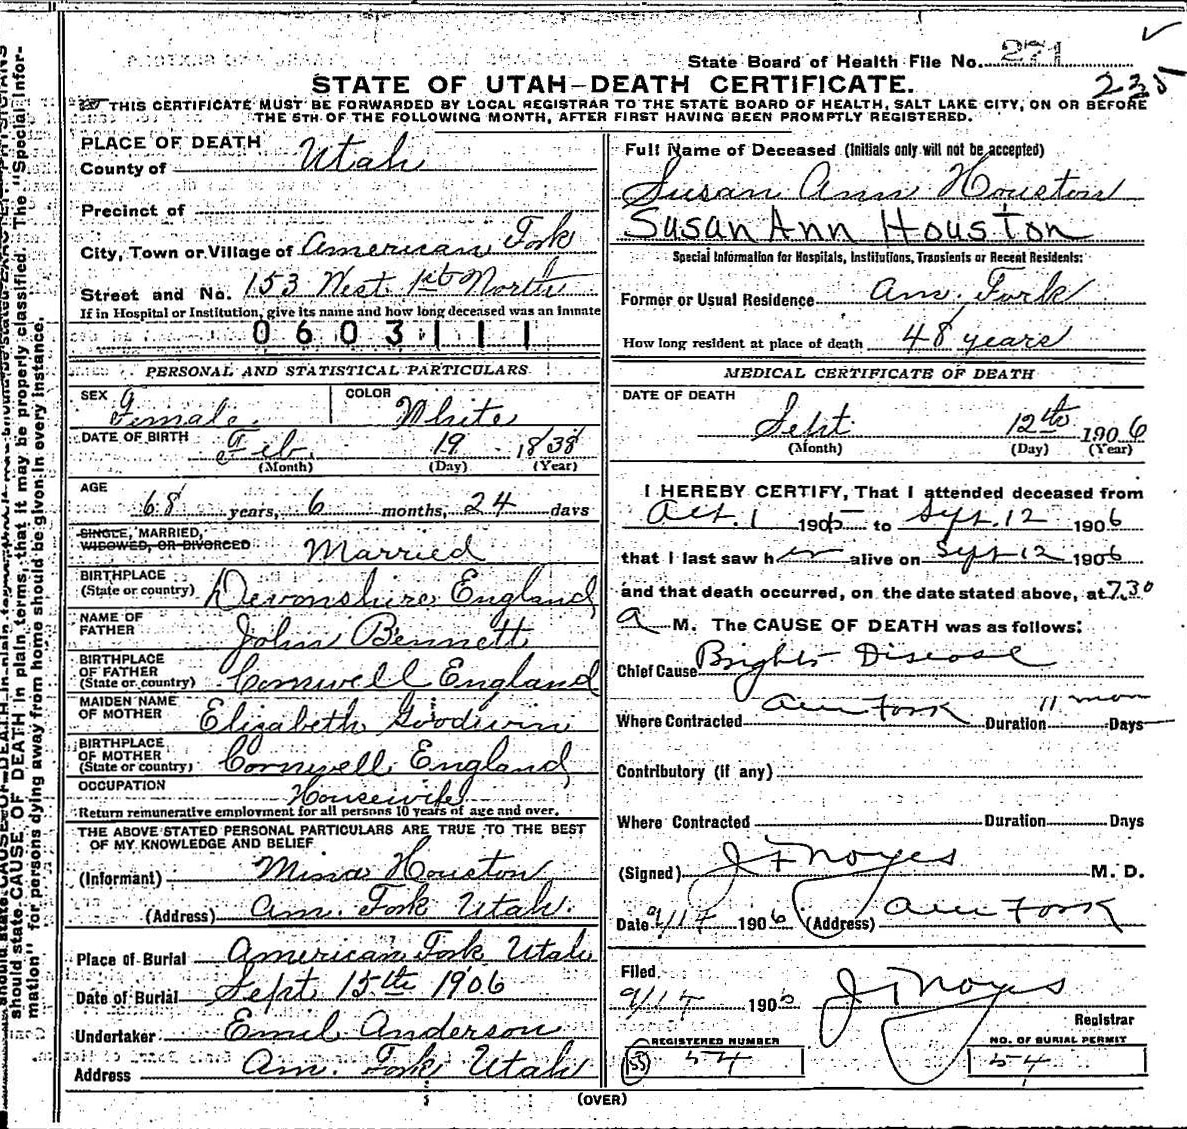 State Board of Health File No. 271
235
STATE OF UTAH–DEATH CERTIFICATE.
THIS CERTIFICATE MUST BE FORWARDED BY LOCAL REGISTRAR TO THE STATE BOARD OF HEALTH, SALT LAKE CITY, ON OR BEFORE
THE 5TH OF THE FOLLOWING MONTH, AFTER FIRST HAVING BEEN PROMPTLY REGISTERED.
PLACE OF DEATH
County of Utah
Precinct of
City, Town or Village of American Fork
Street and No. 153 West 1st North
If in Hospital or Institution, give its name and how long deceased was an inmate
0603111
PERSONAL AND STATISTICAL PARTICULARS
SEX Female. COLOR White
DATE OF BIRTH Feb. 19 1838
(Month) (Day) (Year)
AGE
68 years, 6 months, 24 days
SINGLE, MARRIED,
WIDOWED, OR DIVORCED Married
BIRTHPLACE
(State or country) Devonshire England
NAME OF
FATHER John Bennett
BIRTHPLACE
OF FATHER
(State or country) Cornwell England
MAIDEN NAME
OF MOTHER Elizabeth Goodwin
BIRTHPLACE
OF MOTHER
(State or country) Cornwell England
OCCUPATION Housewife
Return remunerative employment for all persons 10 years of age and over.
THE ABOVE STATED PERSONAL PARTICULARS ARE TRUE TO THE BEST
OF MY KNOWLEDGE AND BELIEF
(Informant) Mina Houston
(Address) Am. Fork Utah.
Place of Burial American Fork Utah
Date of Burial Sept 15th 1906
Undertaker Emil Anderson
Address Am. Fork Utah
Full Name of Deceased (Initials only will not be accepted)
Susan Ann Houston
Susan Ann Houston
Special Information for Hospitals, Institutions, Transients or Recent Residents:
Former or Usual Residence Am. Fork
How long resident at place of death 48 years
MEDICAL CERTIFICATE OF DEATH
DATE OF DEATH
Sept 12th 1906
(Month) (Day) (Year)
I HEREBY CERTIFY, That I attended deceased from
Oct. 1 1905 to Sept. 12 1906
that I last saw her alive on Sept 12 1906
and that death occurred, on the date stated above, at 7.30
a M. The CAUSE OF DEATH was as follows:
Chief Cause Brights Disease
Where Contracted Am Fork Duration 11 mon Days
Contributory (if any)
Where Contracted Duration Days
(Signed) J F Noyes M. D.
Date 9/17 1906 (Address) Am Fork
Filed, 9/17 190
J F Noyes
Registrar
REGISTERED NUMBER NO. OF BURIAL PERMIT
54 54
(OVER)
should state CAUSE OF DEATH in plain terms, that it may be properly classified. The "Special Infor-
mation" for persons dying away from home should be given in every instance.